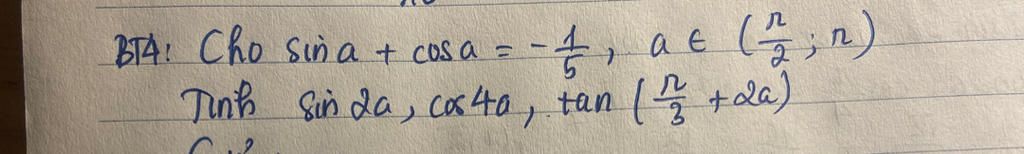 BT4: Cho sin a + cos a = - 1/5, a ∈ (π/2; π)
Tính sin 2a, cos 4a, tan (π/3 + 2a)